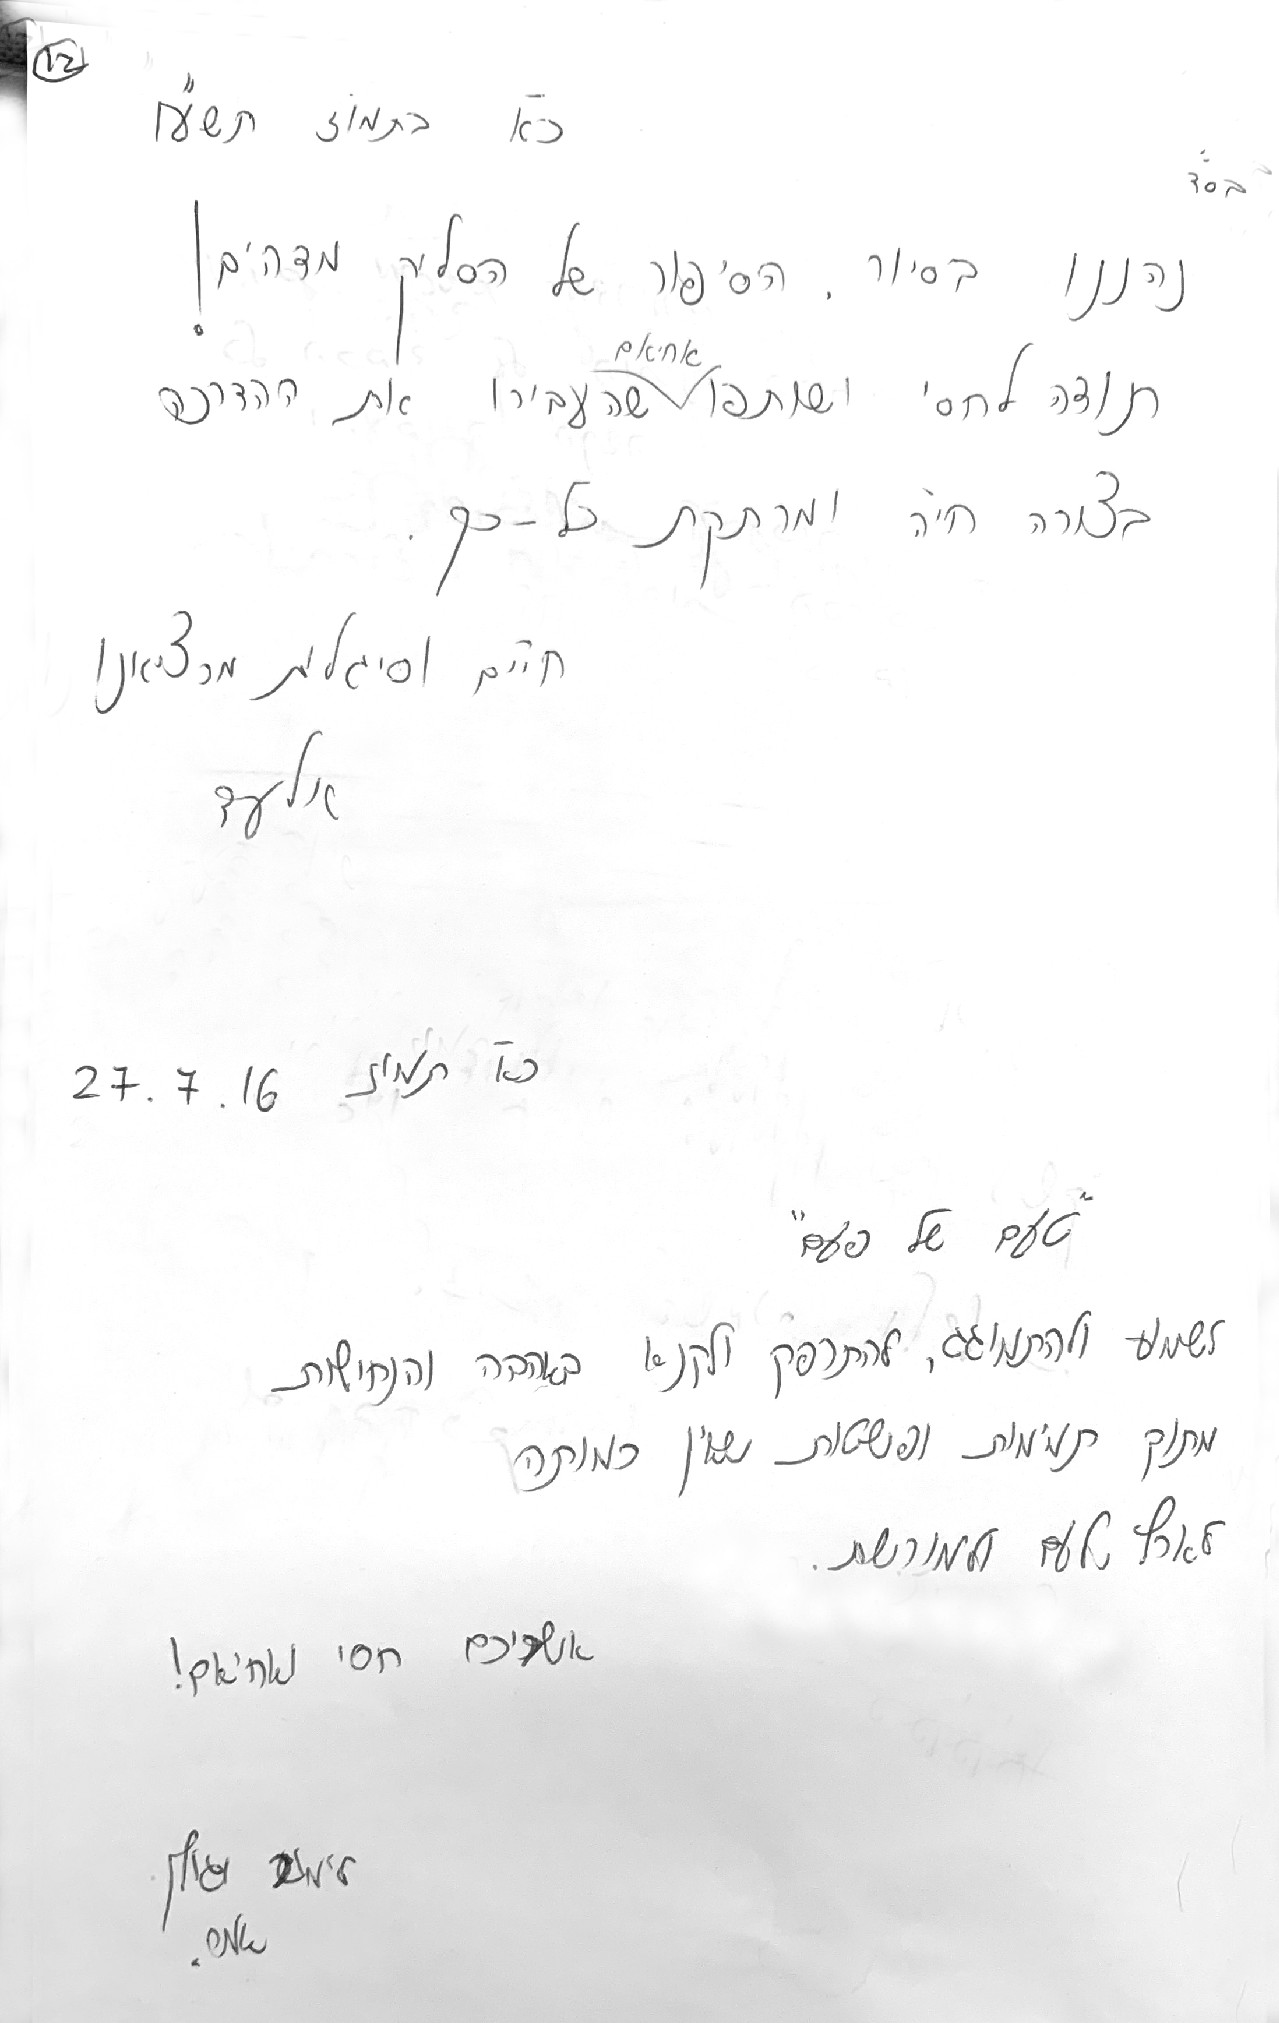 12
כ"א בתמוז תשע"ו
בס"ד
נהננו בסיור. הסיפור של הסליק מדהים!
אחיאם
תודה לחסי ושותפו שהעבירו את ההדרכה
בצורה חיה ומרתקת כל-כך.
חיים וסיגלית מרציאנו
אלעד
כ"א תמוז 27.7.16
"טעם של פעם"
לשמוע ולהתמוגג, להתרפק ולקנא באהבה והנחישות
מתוך תמימות ופשטות שאין כמותה
לארץ לעם ולמורשת.
אשריכם חסי ואחיאם!